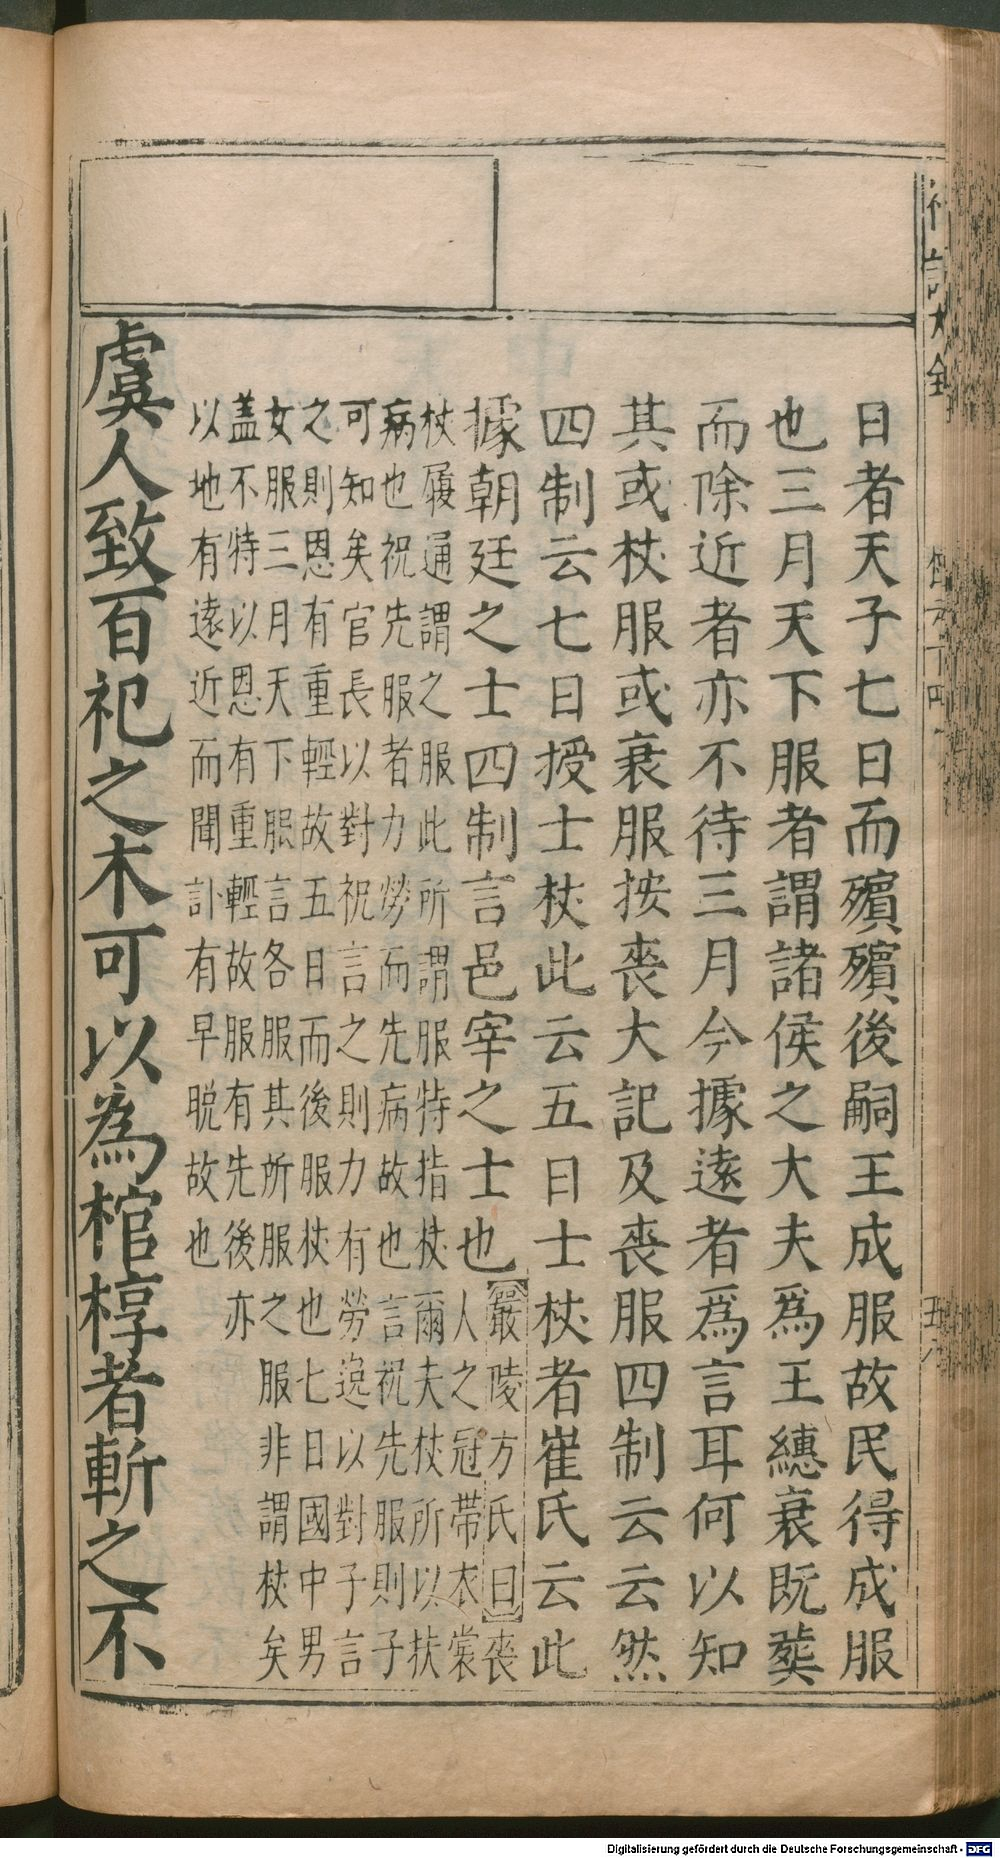 日者天子七日而殯殯後嗣王成服故民得成服
也三月天下服者謂諸侯之大夫爲王繐衰既葬
而除近者亦不待三月今據遠者爲言耳何以知
其或杖服或衰服按喪大記及喪服四制云云然
四制云七日授士杖此云五日士杖者崔氏云此
據朝廷之士四制言邑宰之士也
嚴陵方氏曰喪
人之冠帶衣裳
杖屨通謂之服此所謂服特指杖爾夫杖所以扶
病也祝先服者力勞而先病故也言祝先服則子
可知矣官長以對祝言之則力有勞逸以對子言
之則恩有重輕故五日而後服杖也七日國中男
女服三月天下服言各服其所服之服非謂杖矣
盖不特以恩有重輕故服有先後亦
以地有遠近而聞訃有早晚故也
虞人致百祀之木可以為棺椁者斬之不
Digitalisierung gefördert durch die Deutsche Forschungsgemeinschaft - DFG